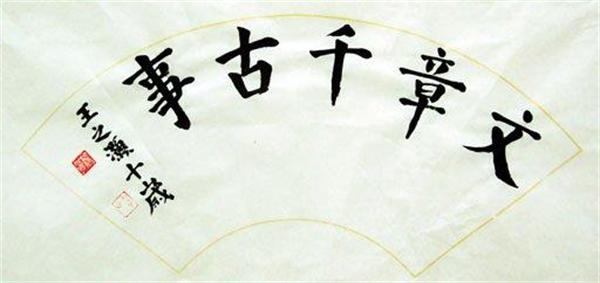 文章千古事
王之灝十歲